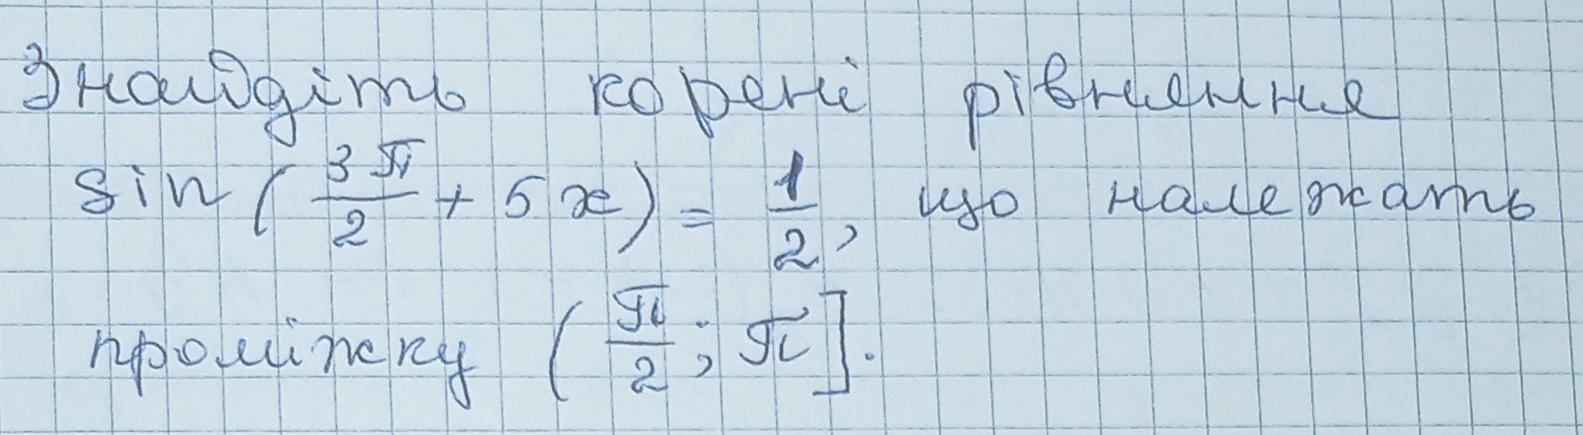 Знайдіть корені рівняння
sin(3π/2 + 5x) = 1/2, що належать
проміжку (π/2; π].